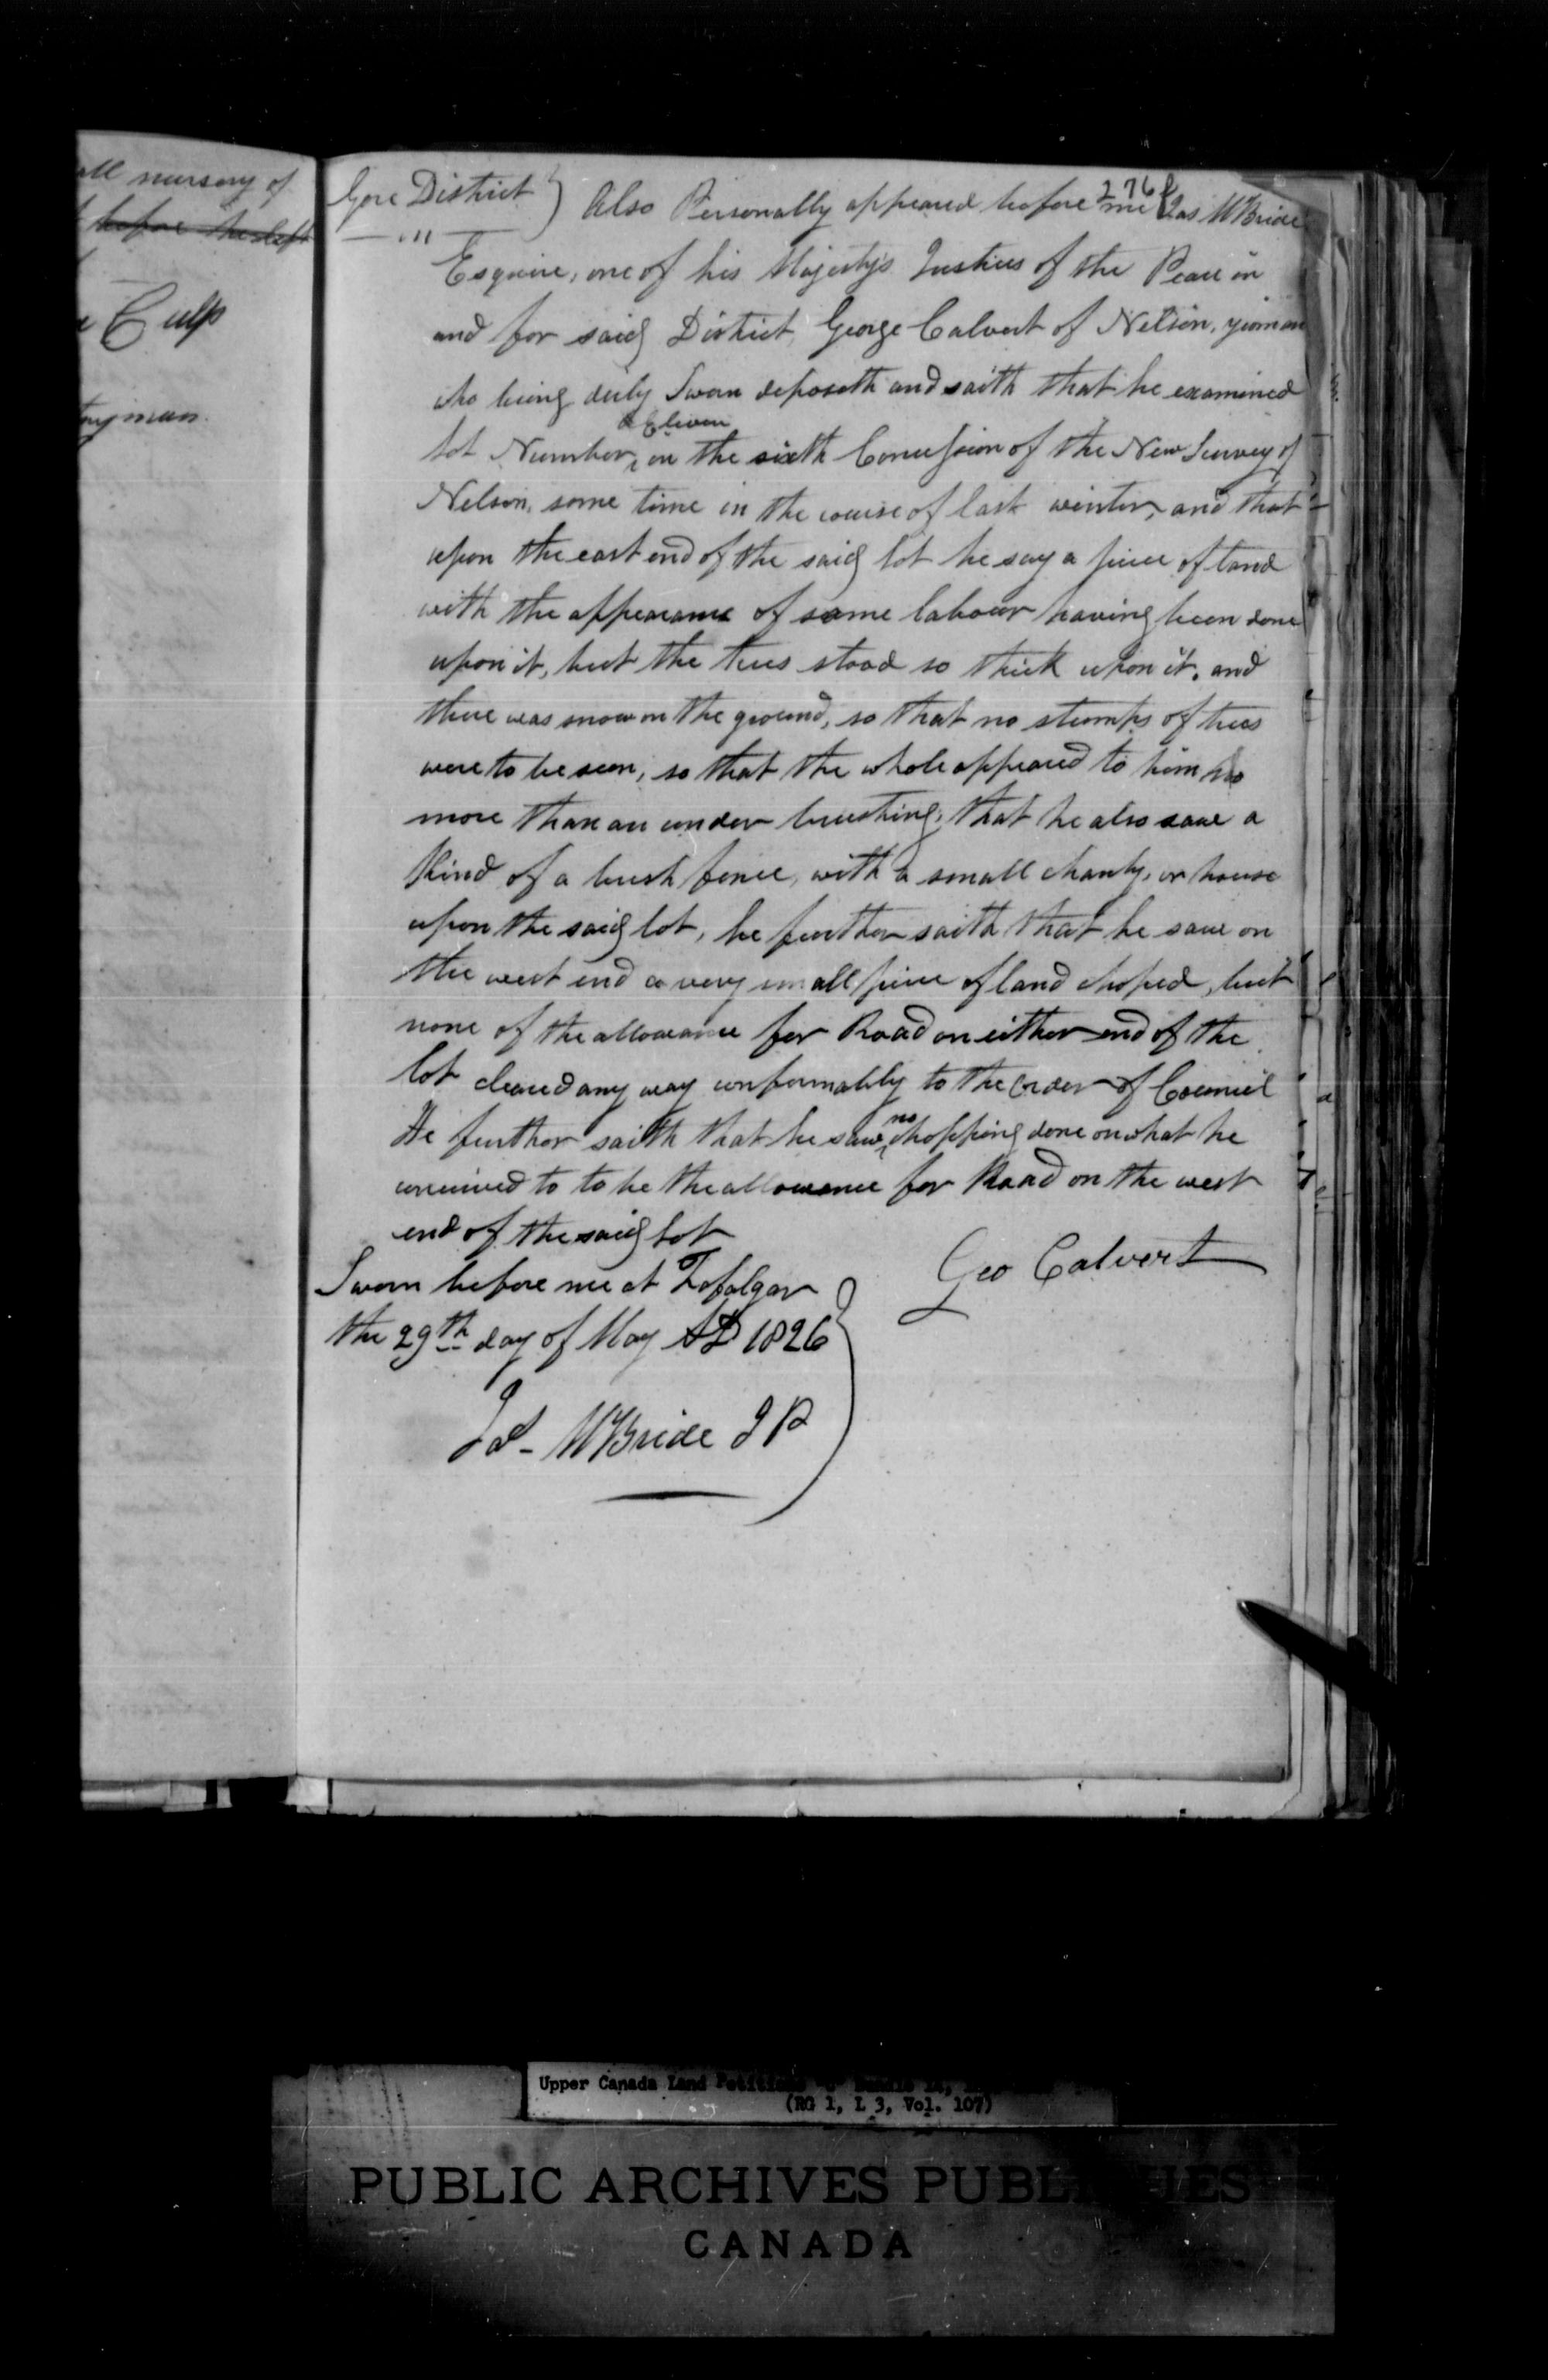 all nursery of
before the left
Culp
276f
Gore District } Also Personally appeared before me Jas McBride
Esquire, one of his Majestys Justices of the Peace in
and for said District, George Calvert of Nelson, yeoman
who being duly Sworn deposeth and saith that he examined
Eleven
lot Number ‸ on the sixth Concession of the New Survey of
Nelson, some time in the course of last winter, and that
upon the east end of the said lot he say a piece of land
with the appearance of some labour having been done
upon it, but the trees stood so thick upon it, and
there was snow on the ground, so that no stumps of trees
were to be seen, so that the whole appeared to him no
more than an under brushing, that he also saw a
kind of a brush fence, with a small chanty, or house
upon the said lot, he further saith that he saw on
the west end a very small piece of land choped, but
none of the allowance for Road on either end of the
lot cleared any way conformably to the Order of Council
no
He further saith that he saw ‸ chopping done on what he
conceived to to be the allowance for Road on the west
end of the said lot
Geo Calvert
Sworn before me at Trafalgar
the 29th day of May AD 1826
Jas McBride JP
Upper Canada Land Petitions
(RG 1, L 3, Vol. 107)
PUBLIC ARCHIVES PUBLIQUES
CANADA